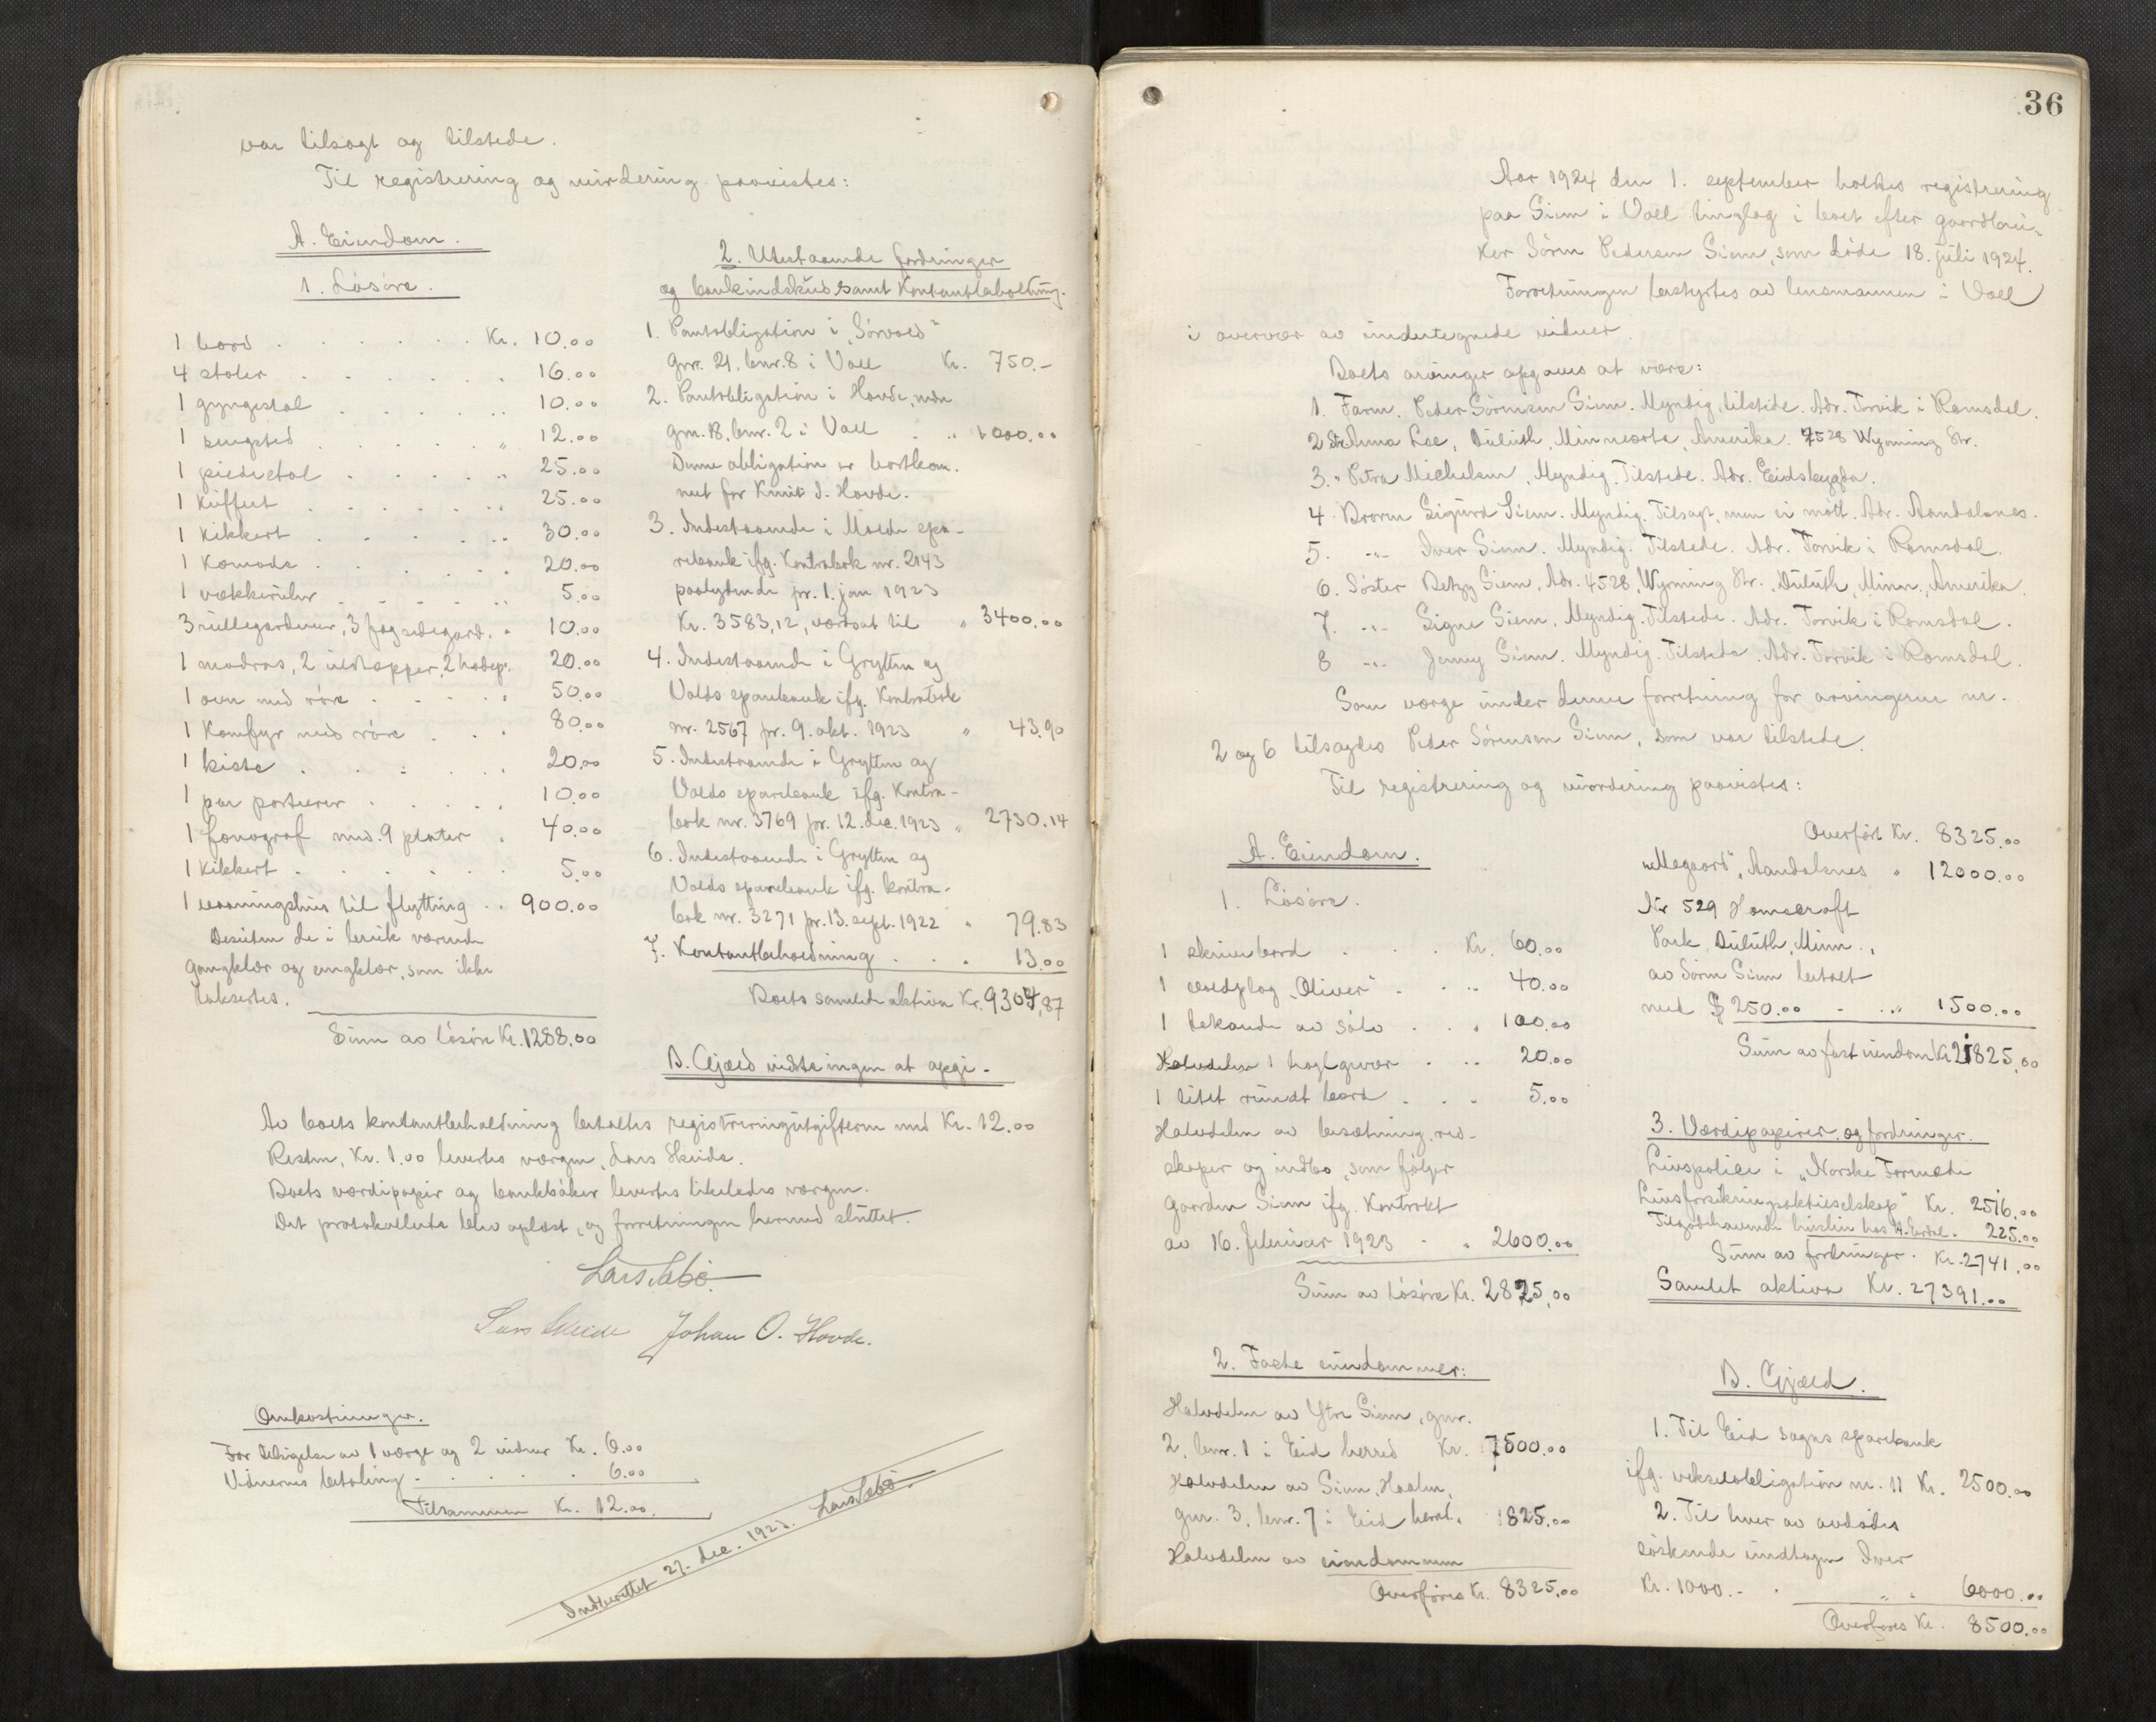 var tilsagt og tilstede.
Til registrering og vurdering paavistes:
A. Eiendom.
1. Lösöre.
1 bord . . . . . . Kr. 10.00
4 stoler . . . . . . 16.00
1 gyngestol . . . . . " 10.00
1 sengsted . . . . . " 12.00
1 piedestal . . . . . " 25.00
1 kuffert . . . . . . " 25.00
1 kikkert . . . . . " 30.00
1 komode . . . . . . 20.00
1 vækkerulur . . . . . " 5.00
3 rullegardiner, 3 fag sidegard. " 10.00
1 madras, 2 uldtepper, 2 hodep. 20.00
1 ovn med röre . . . . " 50.00
1 komfyr med röre . . . 80.00
1 kiste . . . . . . 20.00
1 par portierer . . . . . 10.00
1 fonograf med 9 plater . 40.00
1 kikkert . . . . . . 5.00
1 vaaningshus til flytting . . 900.00
Desuten de i bruk værende
gangklær og sengklær, som ikke
takseres.
Sum av lösöre Kr. 1288.00
2. Utestaaende fordringer
og bankindskud samt kontantbeholdning.
1. Pantobligation i „Sörvold"
gnr. 21, bnr. 8 i Voll Kr. 750.-
2. Pantobligation i Hovde, nedre
gnr. 18, bnr. 2 i Voll . " 1000.00
Denne obligation er bortkom-
met for Knut J. Hovde.
3. Indestaaende i Molde spa-
rebank ifg. Kontrabok nr. 2143
paalydende pr. 1. jan 1923
Kr. 3583,12, værdsat til " 3400.00
4. Indestaaende i Grytten og
Volds sparebank ifg. Kontrabok
nr. 2567 pr. 9. okt. 1923 " 43.90
5. Indestaaende i Grytten og
Volds sparebank ifg. Kontra-
bok nr. 3769 pr. 12. dec. 1923 " 2730.14
6. Indestaaende i Grytten og
Volds sparebank ifg. kontra-
bok nr. 3271 pr. 13. sept. 1922 " 79.83
7. Kontantbeholdning . . . 13.00
Boets samlede aktiva Kr. 9304,87
B. Gjæld vidste ingen at opgi.
Av boets kontantbeholdning betaltes registreringsutgifterne med Kr. 12.00
Resten, Kr. 1.00 levertes værgen, Lars Skeide.
Boets værdipapir og bankböker levertes likeledes værgen.
Det protokollerte blev oplæst, og forretningen hermed sluttet.
Lars Sebö.
Lars Skeide Johan O. Hovde.
Omkostninger.
For tilsigelse av 1 værge og 2 vidner Kr. 6.00
Vidnernes betaling . . . . . 6.00
Tilsammen Kr. 12.00.
Indberettet 27. dec. 1923. Lars Sebö.
36
Aar 1924 den 1. september holdtes registrering
paa Siem i Voll tinglag i boet efter gaardbru-
ker Sören Pedersen Siem, som döde 18. juli 1924.
Forretningen bestyrtes av lensmannen i Voll
i overvær av undertegnede vidner.
Boets arvinger opgaves at være:
1. Faren Peder Sörensen Siem. Myndig, tilstede. Adr. Torvik i Romsdal.
2 Str. Anna Loe, Duluth, Minnesota, Amerika. 7528 Wyoming Str.
3. " Petra Michelsen, Myndig. Tilstede. Adr. Eidsbygda.
4 Broren Sigurd Siem. Myndig. Tilsagt, men ei mött. Adr. Aandalsnes.
5. -"- Iver Siem. Myndig. Tilstede. Adr. Torvik i Romsdal.
6. Söster Betzy Siem, Adr. 4528, Wyoming Str., Duluth, Minn., Amerika.
7. -"- Signe Siem, Myndig. Tilstede. Adr. Torvik i Romsdal.
8 -"- Jenny Siem. Myndig. Tilstede. Adr. Torvik i Romsdal.
Som værge under denne forretning for arvingerne nr.
2 og 6 tilsagdes Peder Sörensen Siem, som var tilstede.
Til registrering og vurdering paavistes:
A. Eiendom.
1. Lösöre.
1 skrivebord . . . Kr. 60.00
1 voldplog „Oliver" . . " 40.00
1 tekande av sölv . . " 100.00
Halvdelen 1 haglgevær . " 20.00
1 litet rundt bord . . . 5.00
Halvdelen av besætning, red-
skaper og indbo, som fölger
gaarden Siem ifg. Kontrakt
av 16. februar 1923 . " 2600.00
Sum av lösöre Kr. 2825,00
2. Faste eiendommer:
Halvdelen av Ytre Siem, gnr.
2, bnr. 1 i Eid herred Kr. 7500.00
Halvdelen av Siem, Haalen,
gnr. 3, bnr. 7 i Eid herred. 825.00
Halvdelen av eiendommen
Overföres Kr. 8325.00
Overfört Kr. 8325.00
„Mogaard", Aandalsnes " 12000.00
Nr 529 Homecroft
Park, Duluth, Minn.,
av Sören Siem betalt
med $ 250.00 - " 1500.00
Sum av fast eiendom Kr. 21825,00
3. Værdipapirer og fordringer.
Livspolice i „Norske Forenede
Livsforsikringsaktieselskap" Kr. 2516.00
Tilgodehavende husleie hos A. Erdal. 225.00
Sum av fordringer. Kr. 2741.00
Samlet aktiva Kr. 27391.00
B. Gjæld.
1. Til Eid sogns sparebank
ifg. vekselobligation nr. 11 Kr. 2500.00
2. Til hver av avdödes
söskende undtagen Iver
Kr. 1000.- . " . 6000.00
Overföres Kr. 8500.00